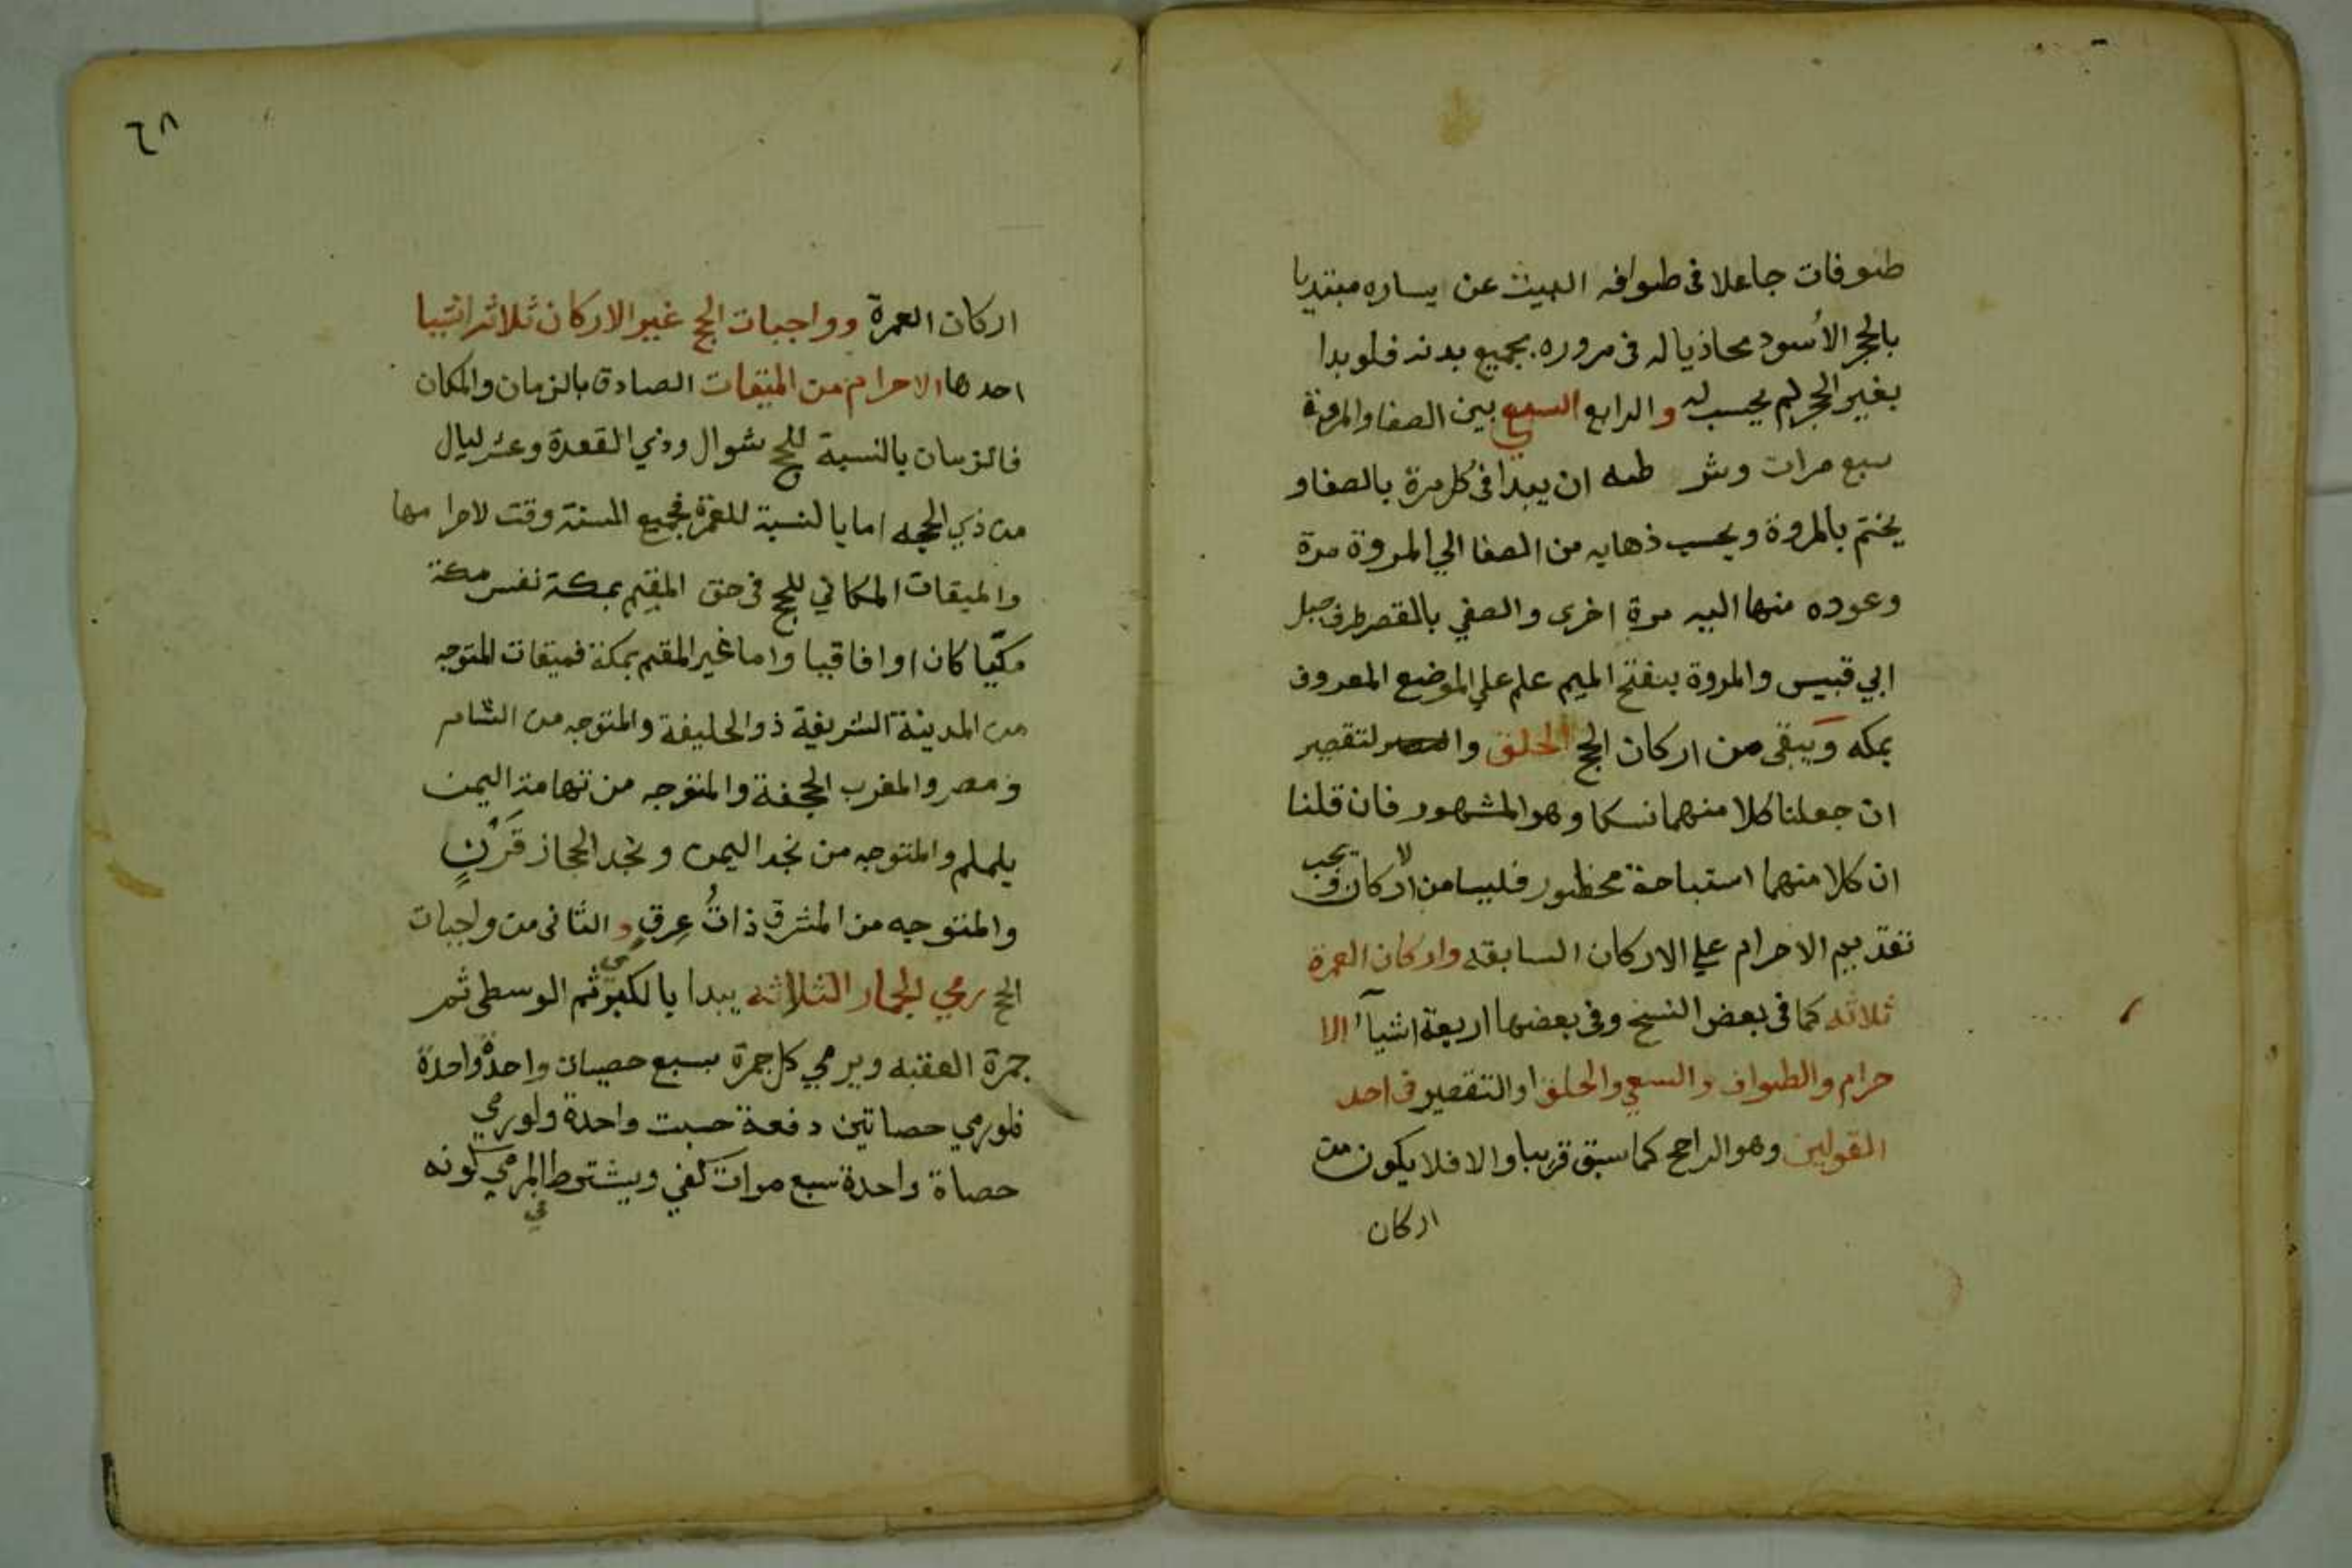 طوفات جاعلا فى طوافه البيت عن يساره مبتديا
بالحجر الأسود محاذيا له فى مروره بجميع بدنه فلو بدا
بغير الحجر لم يحسب له والرابع السعي بين الصفا والمروة
سبع مرات وشر طه ان يبدا فى كل مرة بالصفا و
يختم بالمروة ويحسب ذهابه من الصفا الي المروة مرة
وعوده منها اليه مرة اخرى والصفي بالقصر طرف جبل
ابي قبيس والمروة بفتح الميم علم علي الموضع المعروف
بمكه وَيبقى من اركان الحج الحلق والتقصير
ان جعلنا كلا منهما نسكا وهو المشهور فان قلنا
ان كلا منهما استباحة محظور فليسا من الاركان ويجب
تقديم الاحرام علي الاركان السابقه واركان العمرة
ثلاثه كما فى بعض النسخ وفى بعضها اربعة اشيآء الا
حرام والطواف والسعي والحلق او التقصير فى احد
القولين وهو الراجح كما سبق قريبا والا فلا يكون من
اركان
٦٨
اركان العمرة وواجبات الحج غير الاركان ثلاثة اشيا
احدها الاحرام من الميقات الصادق بالزمان والمكان
فالزمان بالنسبة للحج شوال وذي القعدة وعشر ليال
من ذي الحجه اما بالنسبة للعمرة فجميع السنة وقت لاحرامها
والميقات المكاني للحج فى حق المقيم بمكة نفس مكة
مكيّا كان او افاقيا واما غير المقيم بمكة فميقات المتوجه
من المدينة الشريفة ذو الحليفة والمتوجه من الشام
ومصر والمغرب الجحفة والمتوجه من تهامة اليمن
يلملم والمتوجه من نجد اليمن ونجد الحجاز قَرْنٍ
والمتوجه من المشرق ذاتُ عِرقٍ والثانى من واجبات
الحج رمي الجمار الثلاثه يبدا بالكبرى ثم الوسطى ثم
جمرة العقبه ويرمي كل جمرة بسبع حصيات واحدة واحدة
فلو رمي حصاتين دفعة حسبت واحدة ولو رمي
حصاة واحدة سبع مرات كفي ويشترط في المرمي كونه